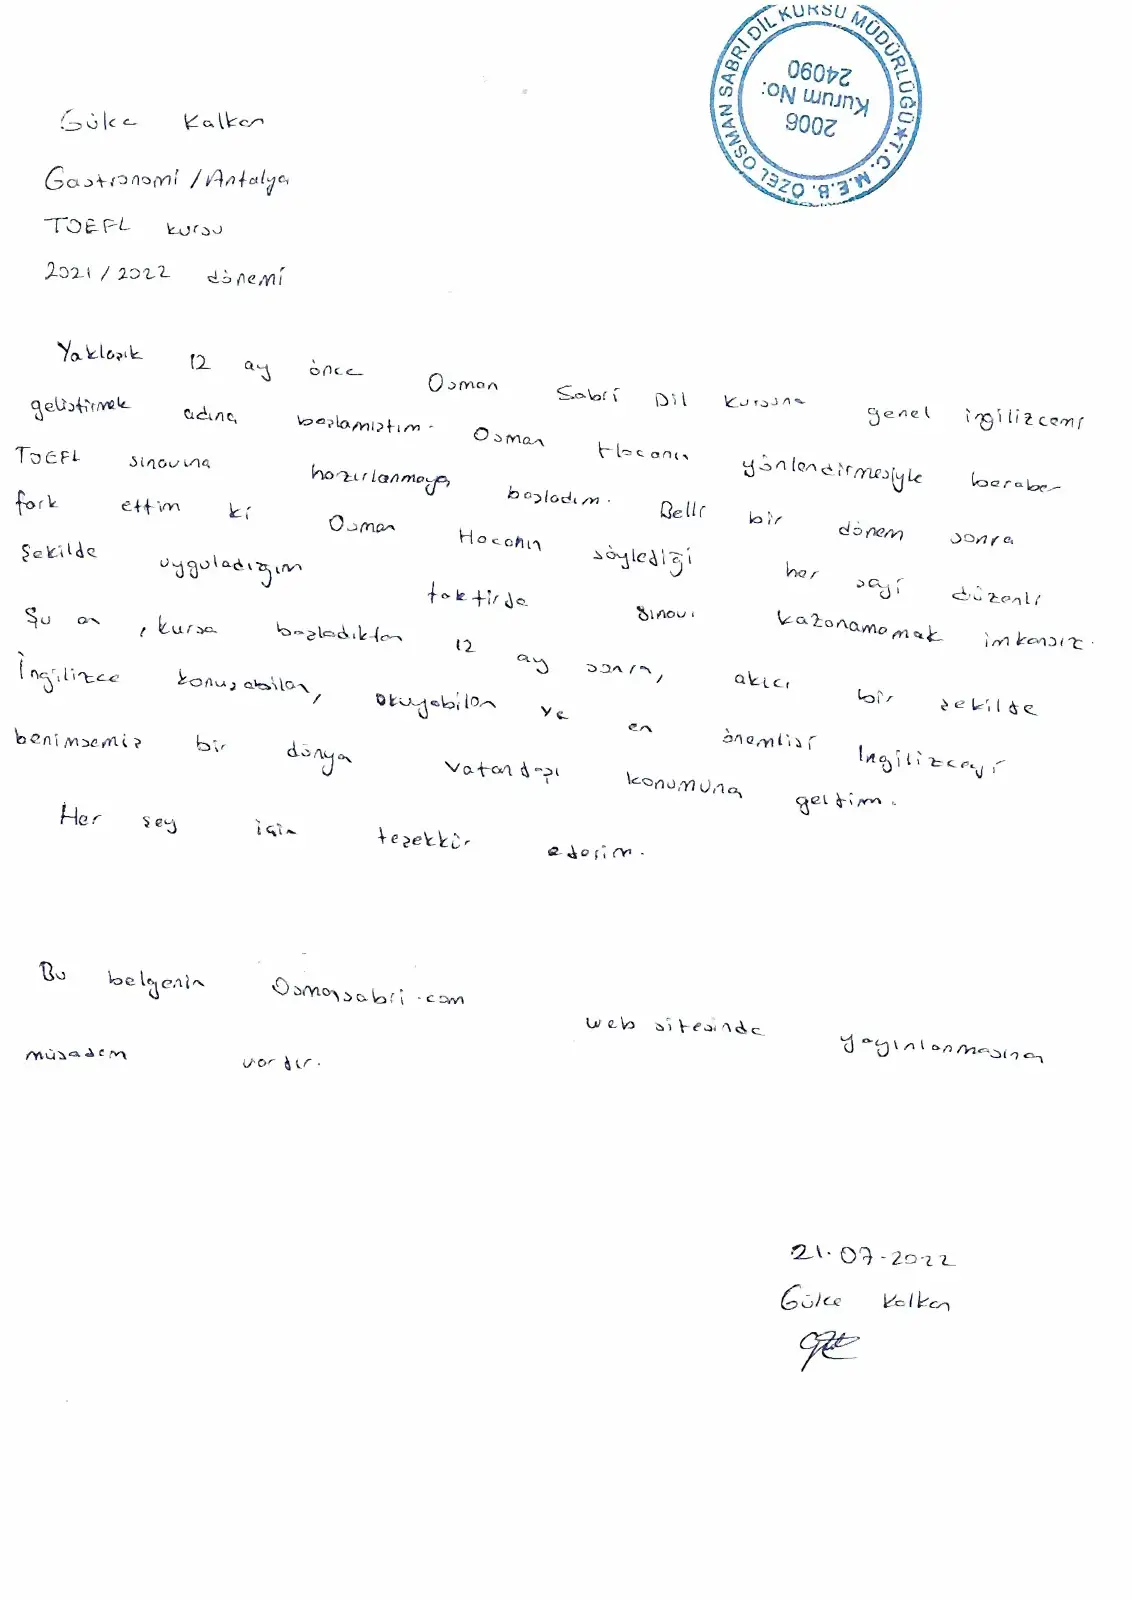 T.C. M.E.B. ÖZEL OSMAN SABRİ DİL KURSU MÜDÜRLÜĞÜ
2006
Kurum No:
24090
Gülce Kalkan
Gastronomi / Antalya
TOEFL kursu
2021 / 2022 dönemi
Yaklaşık 12 ay önce Osman Sabri Dil kursuna genel ingilizcemi
geliştirmek adına başlamıştım. Osman Hocanın yönlendirmesiyle beraber
TOEFL sınavına hazırlanmaya başladım. Belli bir dönem sonra
fark ettim ki Osman Hocanın söylediği her şeyi düzenli
Şekilde uyguladığım taktirde sınavı kazanamamak imkansız.
Şu an, kursa başladıktan 12 ay sonra, akıcı bir şekilde
İngilizce konuşabilen, okuyabilen ve en önemlisi İngilizceyi
benimsemiş bir dünya vatandaşı konumuna geldim.
Her şey için teşekkür ederim.
Bu belgenin Osmansabri.com web sitesinde yayınlanmasına
müsadem vardır.
21.07.2022
Gülce Kalkan